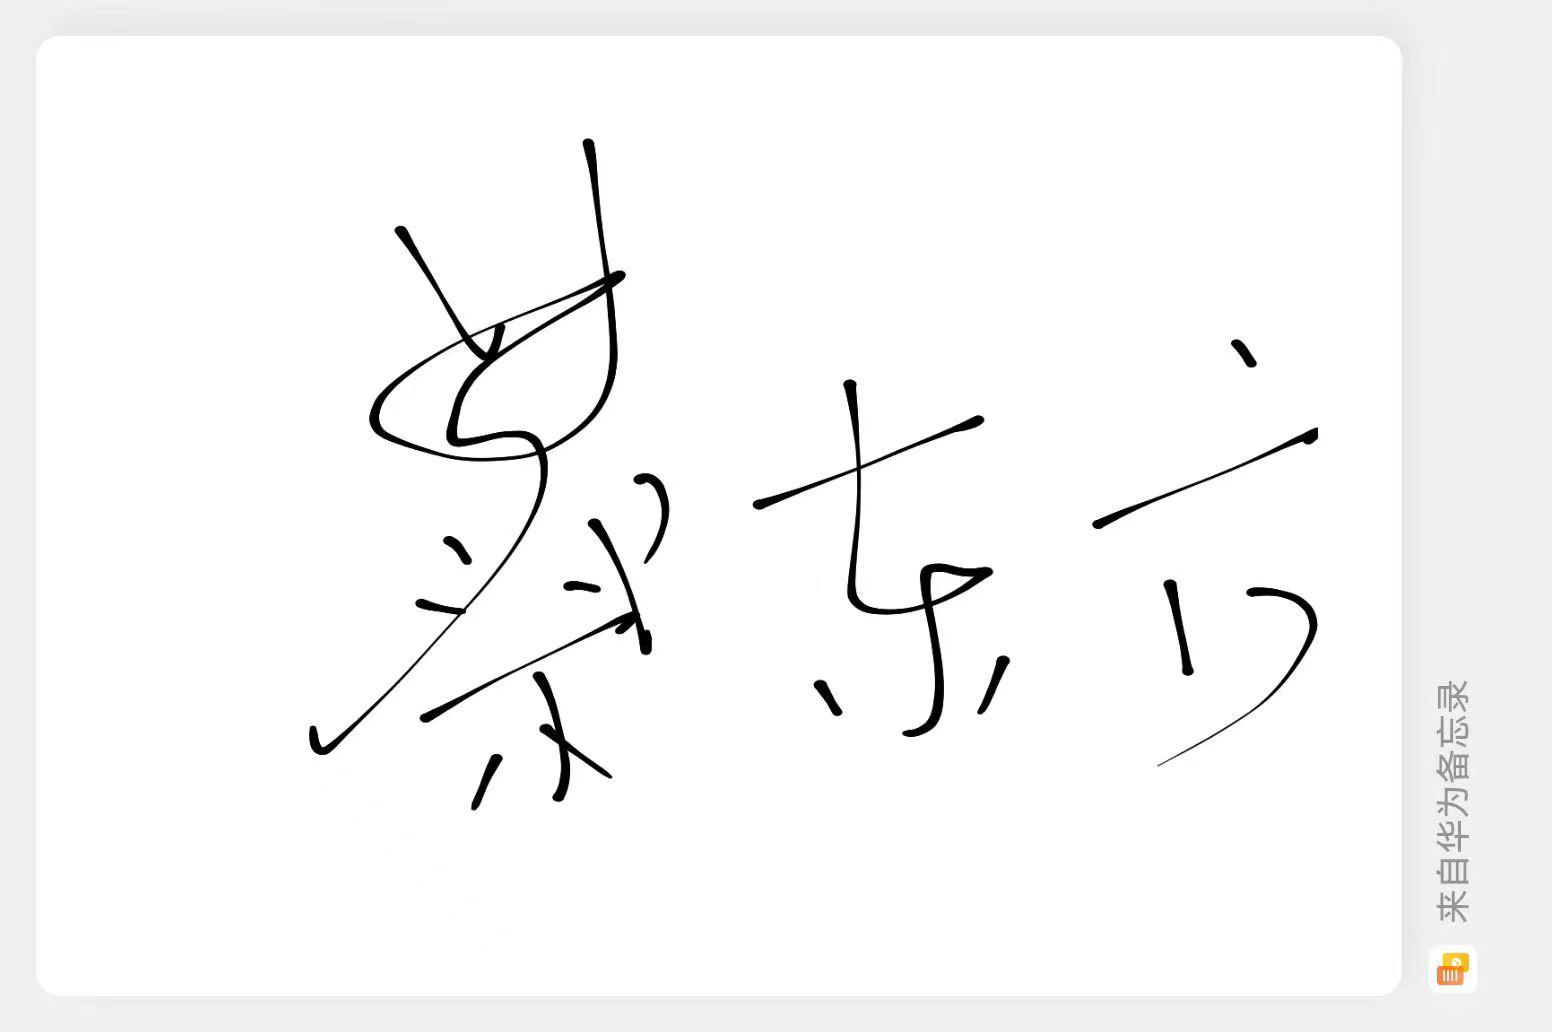 蔡东
来自华为备忘录